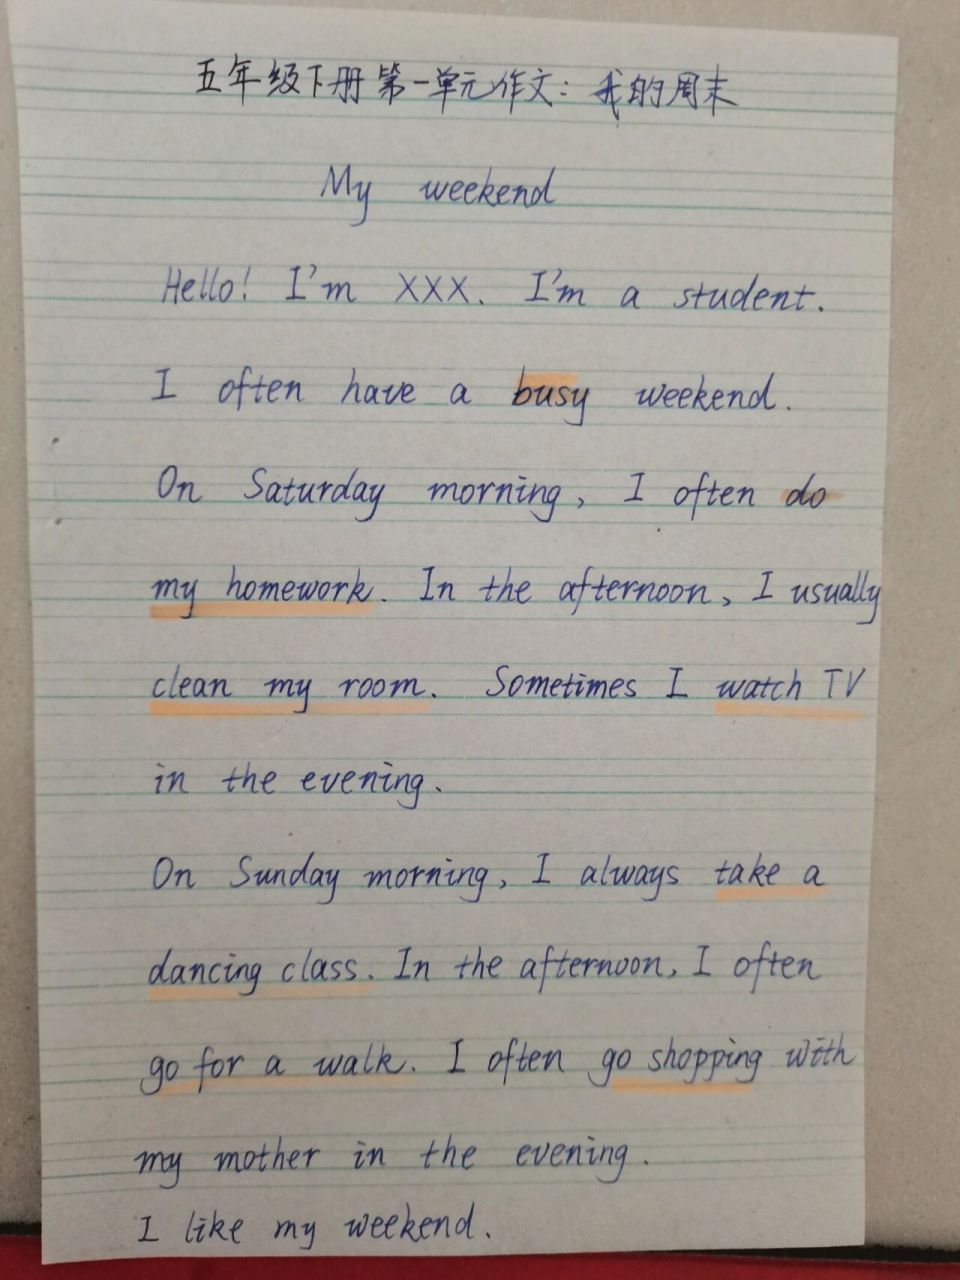 五年级下册第一单元作文：我的周末
My weekend
Hello! I'm XXX. I'm a student.
I often have a busy weekend.
On Saturday morning, I often do
my homework. In the afternoon, I usually
clean my room. Sometimes I watch TV
in the evening.
On Sunday morning, I always take a
dancing class. In the afternoon, I often
go for a walk. I often go shopping with
my mother in the evening.
I like my weekend.